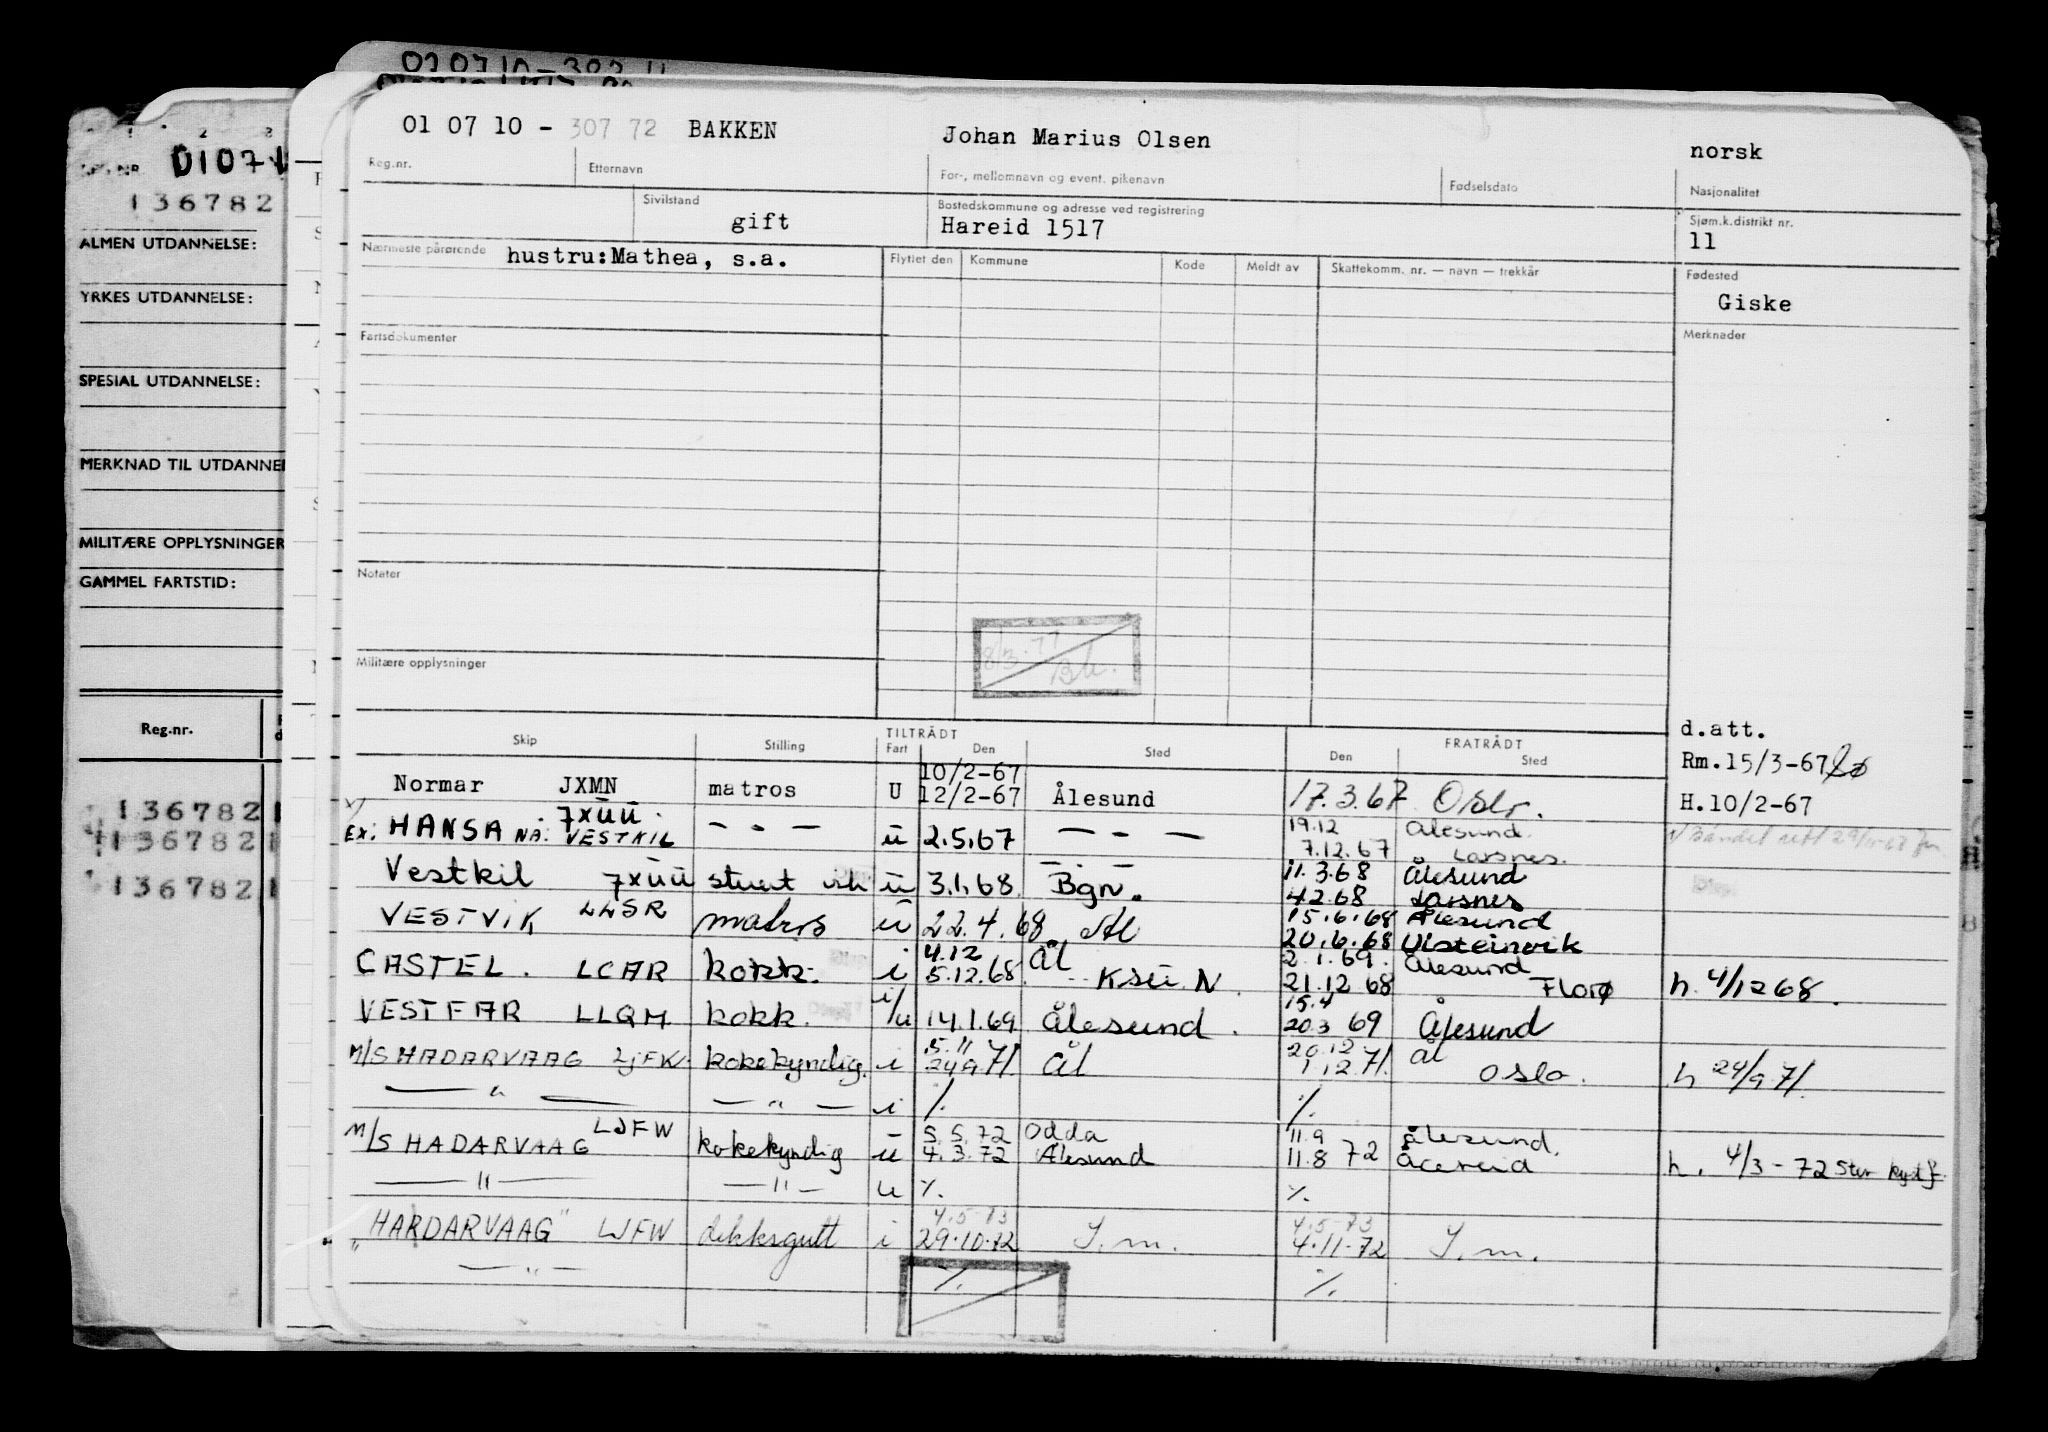 01 07 10 - 307 72 BAKKEN Johan Marius Olsen norsk
Reg.nr. Etternavn For-, mellomnavn og event. pikenavn Fødselsdato Nasjonalitet
Sivilstand gift Bostedskommune og adresse ved registrering Hareid 1517 Sjøm.k.distrikt nr. 11
Nærmeste pårørende hustru:Mathea, s.a. Flyttet den Kommune Kode Meldt av Skattekomm. nr. — navn — trekkår Fødested
Giske
Fartsdokumenter Merknader
Notater
8/3.77
Militære opplysninger
d.att.
Skip Stilling TILTRÅDT Fart Den Sted FRATRÅDT Den Sted Rm.15/3-67
10/2-67
Normar JXMN matros U 12/2-67 Ålesund 17.3.67 Oslo. H.10/2-67
7XUU 19.12 Ålesund.
EX: HANSA NÅ: VESTKIL — " — u 2.5.67 — " — 7.12.67 Larsnes.
Vestkil 7XUU stuert u 3.1.68 Bgn. 11.3.68 Ålesund
4.2.68 Larsnes
VESTVIK LLSR matros u 22.4.68 Ål 15.6.68 Ålesund
20.6.68 Ulsteinvik
4.12 Ål 2.1.69. Ålesund
CASTEL. LCAR kokk. i 5.12.68 KSU.N. 21.12 68 Florø h. 4/12 68.
15.4
VESTFAR LLQM kokk. i/u 14.1.69 Ålesund. 20.3 69 Ålesund
5.11 20.12 Ål
M/S HADARVAAG LJFW kokekyndig. i 24.9 71. Ål 1.12.71. Oslo. h 24/9 71.
— " — — " — i %. %.
LJFW 5.5.72 Odda 11.9 Ålesund.
M/S HADARVAAG kokekyndig u 4.3.72 Ålesund 11.8 72 h. 4/3 - 72
— " — — " — u %. %.
4.5-73 4.5-73
"HARDARVAAG" LJFW dekksgutt i 29.10.72 I.m. 4.11-72 I.m.
— " — %. %.
136782
ALMEN UTDANNELSE:
YRKES UTDANNELSE:
SPESIAL UTDANNELSE:
MERKNAD TIL UTDANNE
MILITÆRE OPPLYSNINGER
GAMMEL FARTSTID:
Reg.nr.
136782
136782
136782